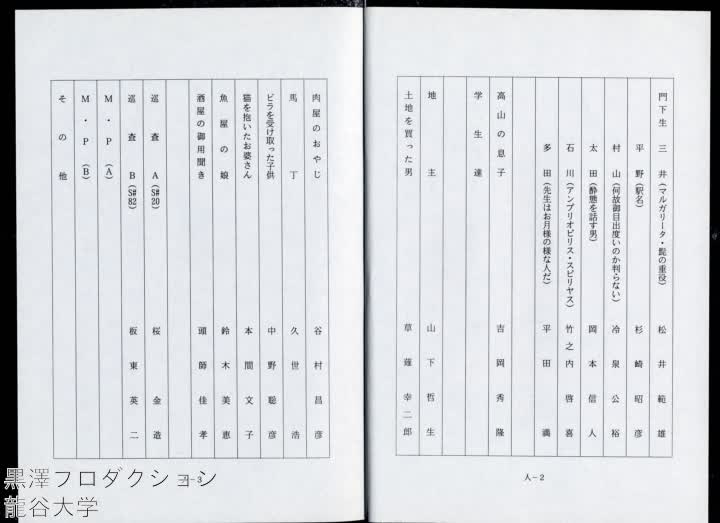 門下生 三井(マルガリータ・髭の重役) 松井範雄
平野(駅名) 杉崎昭彦
村山(何故御目出度いのか判らない) 冷泉公裕
太田(酔態を話す男) 岡本信人
石川(アンブリオピリス・スピリヤス) 竹之内啓喜
多田(先生はお月様の様な人だ) 平田満
高山の息子 吉岡秀隆
学生達
地主 山下哲生
土地を買った男 草薙幸二郎
人-2
肉屋のおやじ 谷村昌彦
馬丁 久世浩
ビラを受け取った子供 中野聡彦
猫を抱いたお婆さん 本間文子
魚屋の娘 鈴木美恵
酒屋の御用聞き 頭師佳孝
巡査A(S#20) 桜金造
巡査B(S#82) 板東英二
M・P(A)
M・P(B)
その他
人-3
黒澤プロダクション
龍谷大学